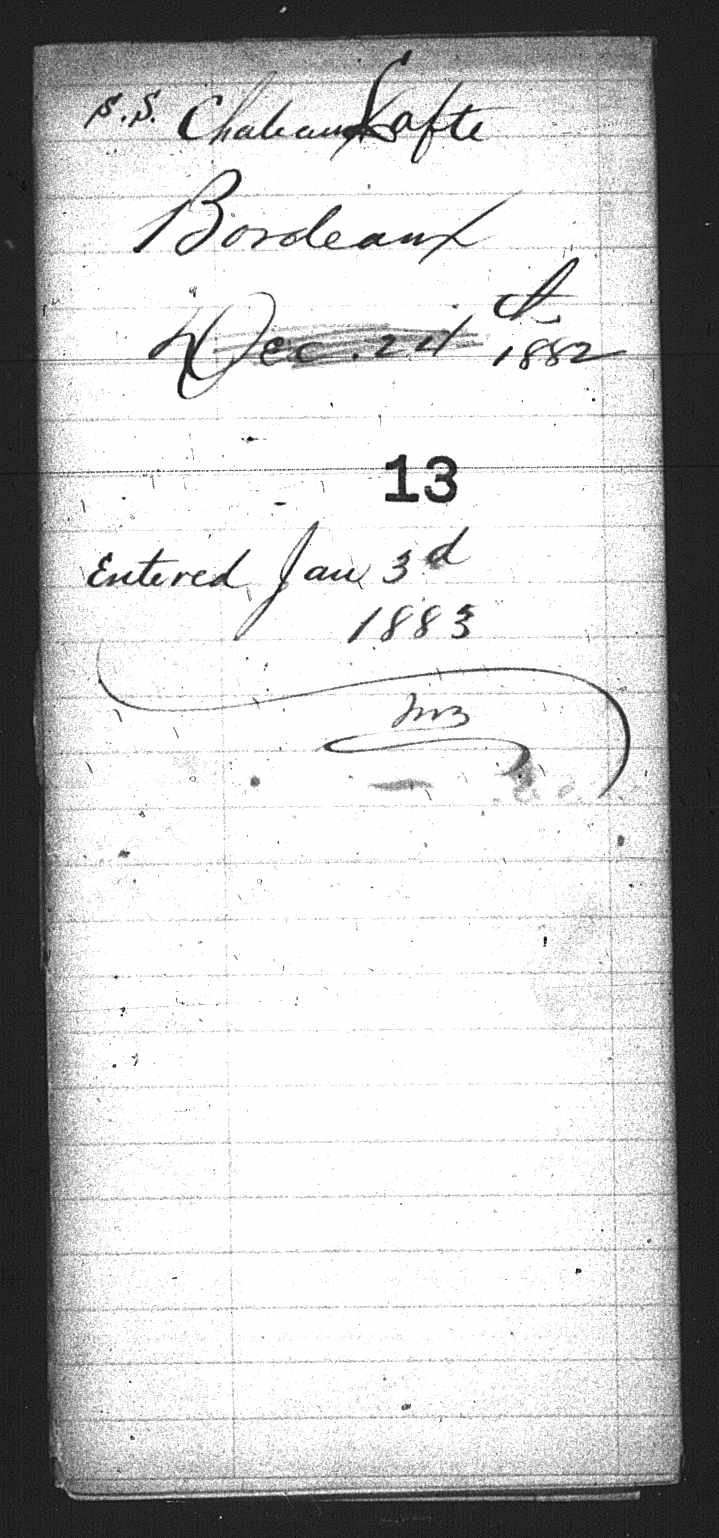 S.S. Chateau Lafte
Bordeaux
Dec. 24th 1882
13
Entered Jan 3d
1883